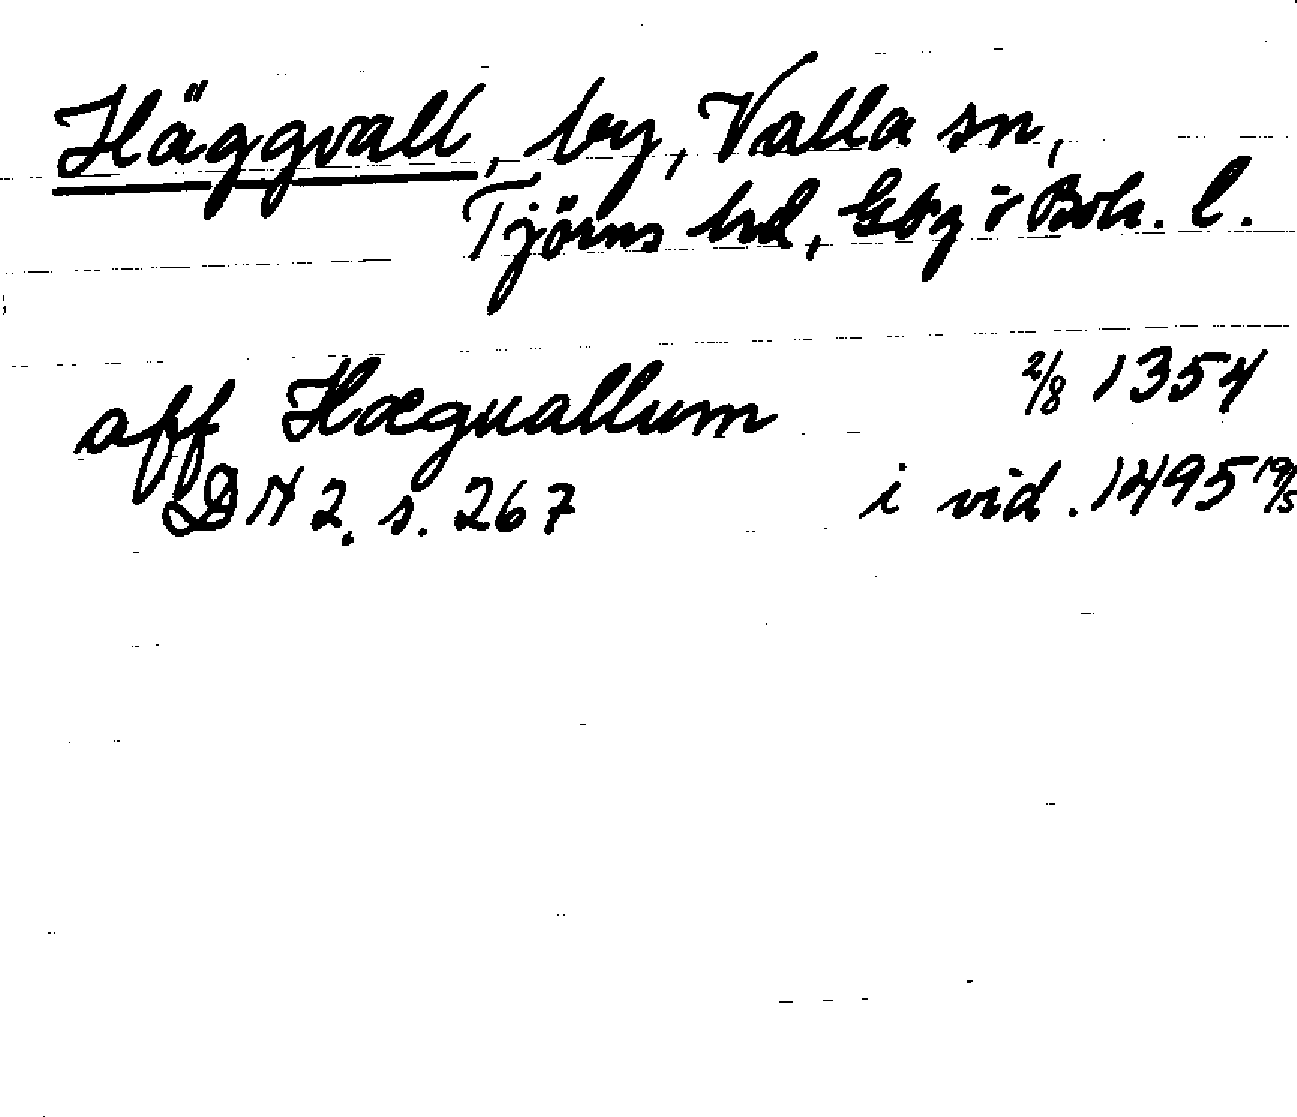 Häggvall, by, Valla sn,
Tjörns hd, Gbg o Boh. l.
aff Hæguallum 2/8 1354
DN 2. s. 267 i vid. 1495 19/5